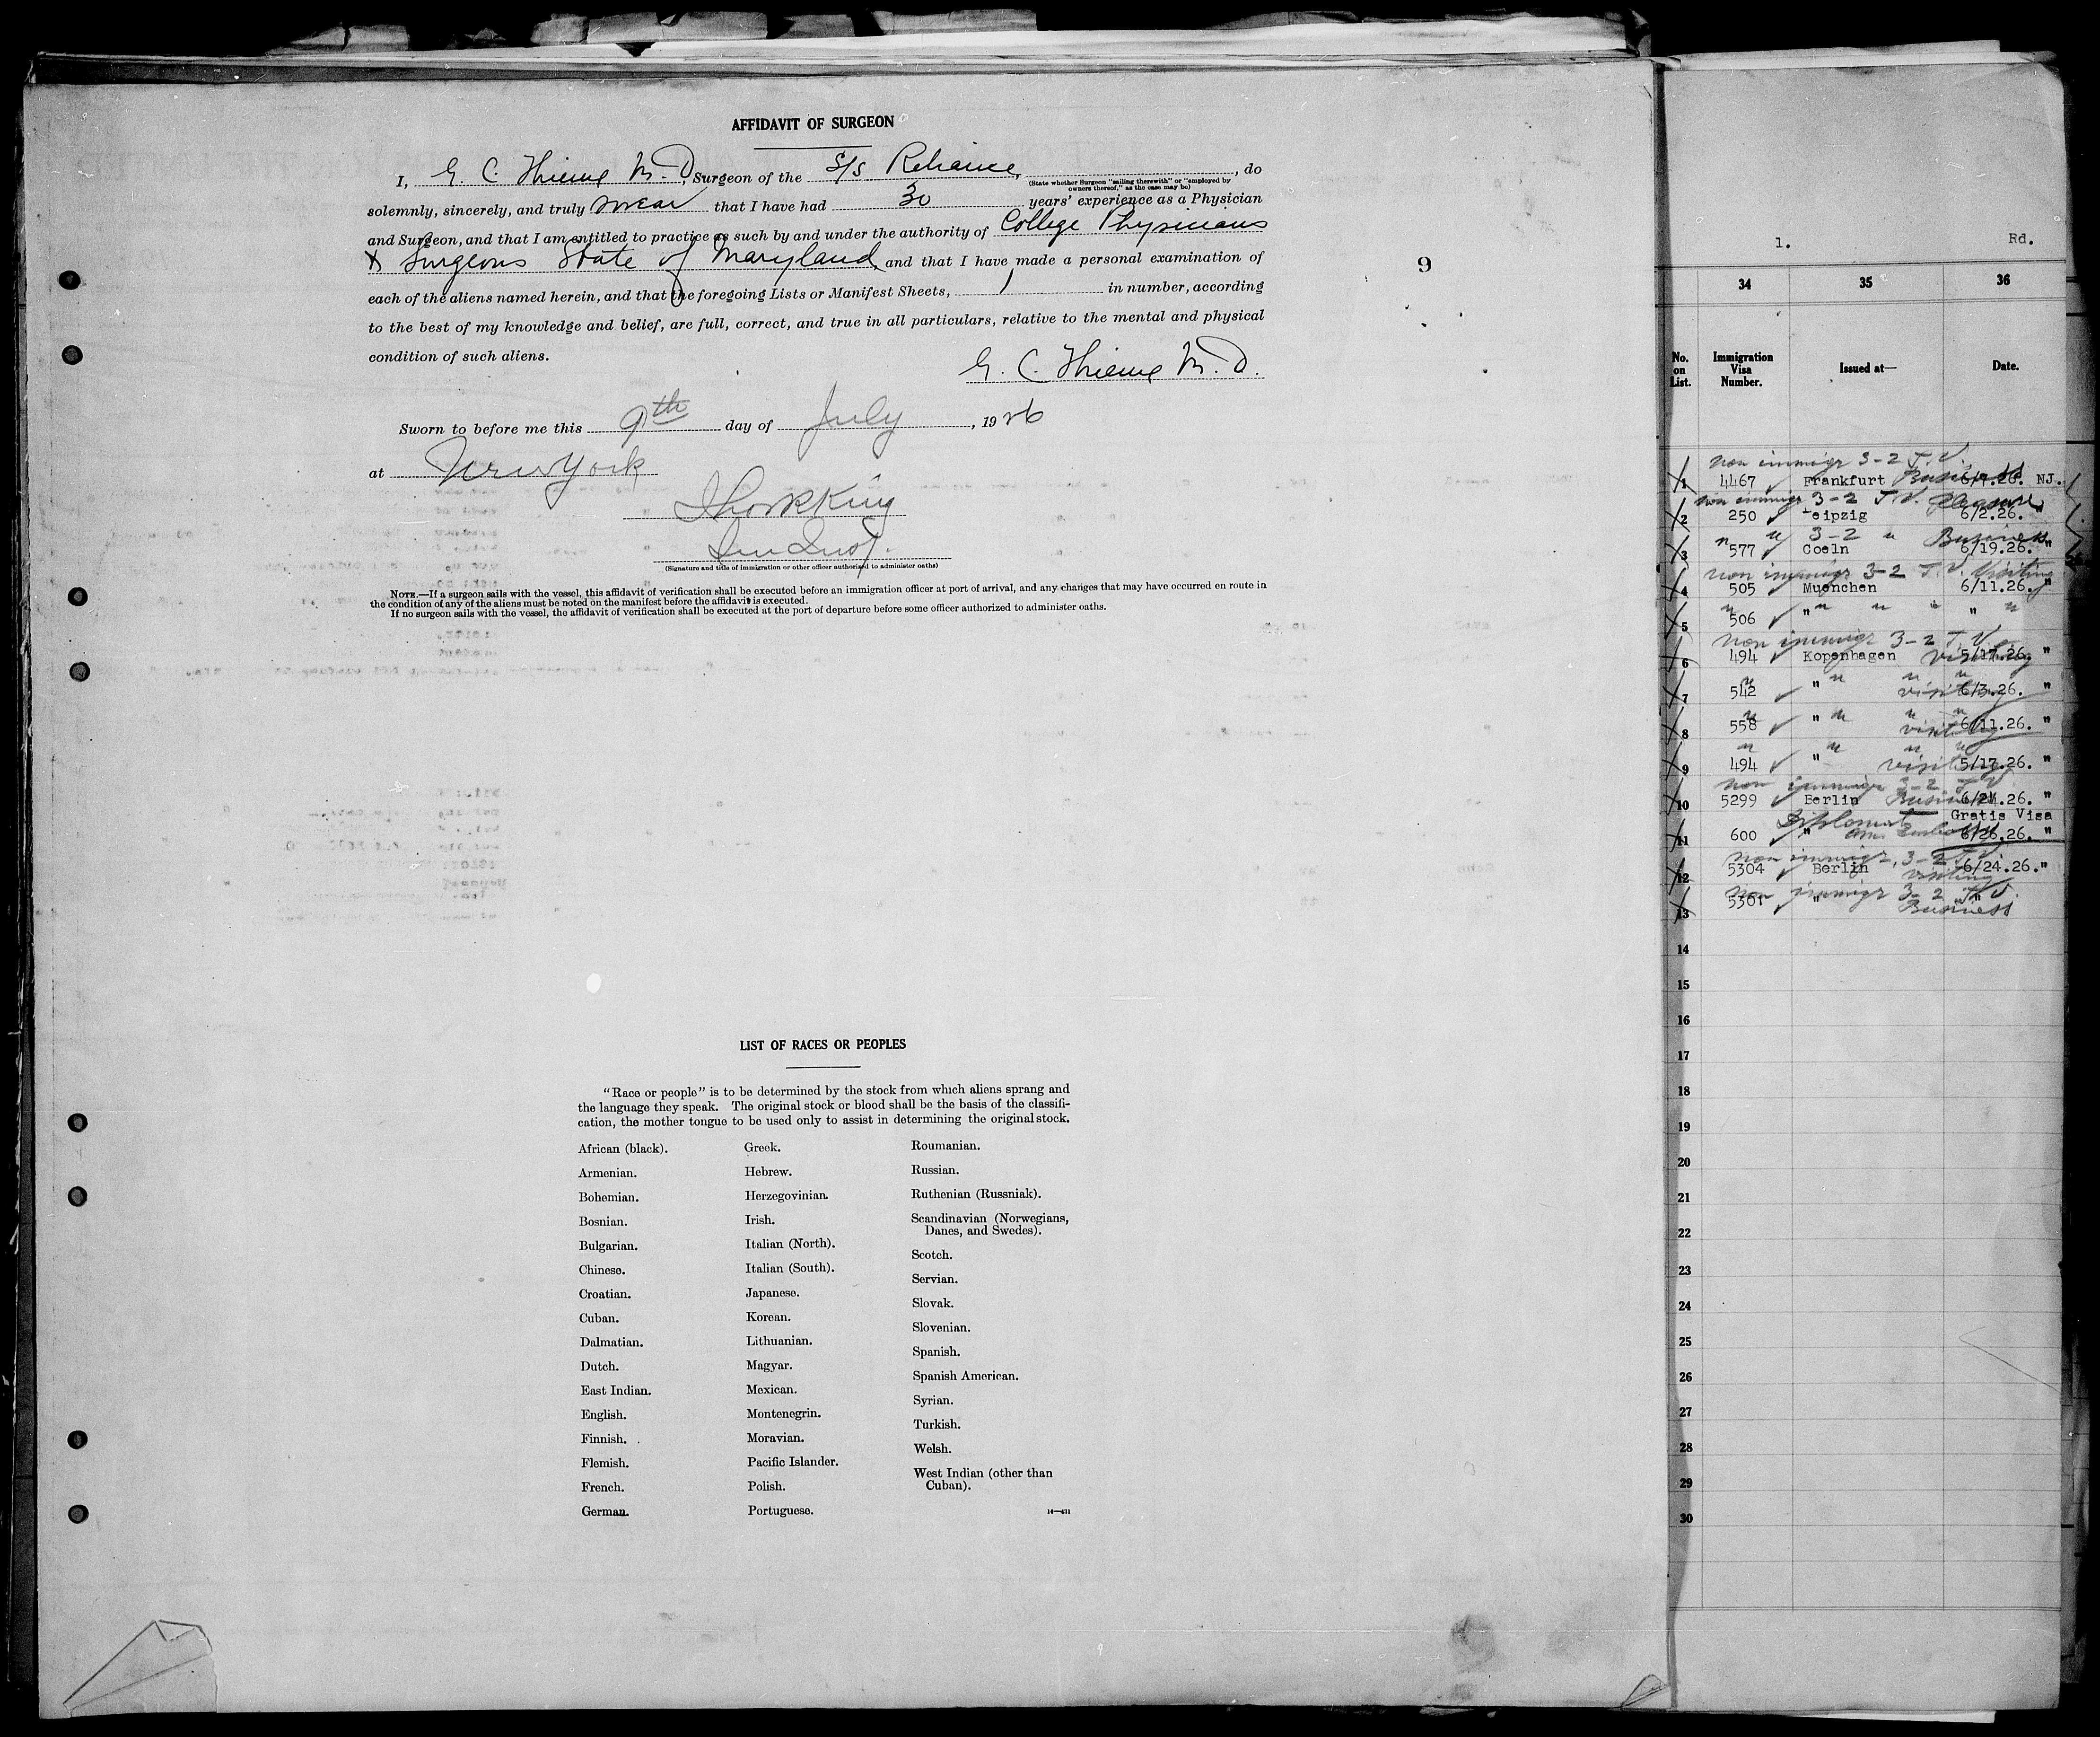 AFFIDAVIT OF SURGEON
I, G. C. Thieme M.D., Surgeon of the S/S Reliance, , do
(State whether Surgeon "sailing therewith" or "employed by owners thereof," as the case may be)
solemnly, sincerely, and truly swear that I have had 30 years' experience as a Physician
and Surgeon, and that I am entitled to practice as such by and under the authority of College Physicians
& Surgeons State of Maryland, and that I have made a personal examination of
each of the aliens named herein, and that the foregoing Lists or Manifest Sheets, 1 in number, according
to the best of my knowledge and belief, are full, correct, and true in all particulars, relative to the mental and physical
condition of such aliens.
G. C. Thieme M.D.
Sworn to before me this 9th day of July, 1926
at New York
(Signature and title of immigration or other officer authorized to administer oaths)
NOTE.—If a surgeon sails with the vessel, this affidavit of verification shall be executed before an immigration officer at port of arrival, and any changes that may have occurred en route in
the condition of any of the aliens must be noted on the manifest before the affidavit is executed.
If no surgeon sails with the vessel, the affidavit of verification shall be executed at the port of departure before some officer authorized to administer oaths.
9
LIST OF RACES OR PEOPLES
"Race or people" is to be determined by the stock from which aliens sprang and
the language they speak. The original stock or blood shall be the basis of the classifi-
cation, the mother tongue to be used only to assist in determining the original stock.
African (black).
Armenian.
Bohemian.
Bosnian.
Bulgarian.
Chinese.
Croatian.
Cuban.
Dalmatian.
Dutch.
East Indian.
English.
Finnish.
Flemish.
French.
German.
Greek.
Hebrew.
Herzegovinian.
Irish.
Italian (North).
Italian (South).
Japanese.
Korean.
Lithuanian.
Magyar.
Mexican.
Montenegrin.
Moravian.
Pacific Islander.
Polish.
Portuguese.
Roumanian.
Russian.
Ruthenian (Russniak).
Scandinavian (Norwegians,
Danes, and Swedes).
Scotch.
Servian.
Slovak.
Slovenian.
Spanish.
Spanish American.
Syrian.
Turkish.
Welsh.
West Indian (other than
Cuban).
14—431
1. Rd.
34 35 36
No. on List. Immigration Visa Number. Issued at— Date.
non immigr 3-2 T.V.
1 4467 Frankfurt Business NJ.
non immigr 3-2 T.V. Pleasure
2 250 Leipzig 6/2.26. "
" " 3-2 " Business
3 577 Coeln 6/19.26. "
non immigr 3-2 T.V. Visiting
4 505 Muenchen 6/11.26. "
5 506 " " " " " "
non immigr 3-2 T.V.
6 494 Kopenhagen visiting 5/17.26. "
7 542 " " " " visiting 6/3.26. "
8 558 " " " " visiting 6/11.26. "
9 494 " " " " visiting 5/17.26. "
non immigr 3-2 T.V.
10 5299 Berlin Business 6/24.26. "
Diplomat Gratis Visa
11 600 " 6/26.26. "
non immigr, 3-2 T.V.
12 5304 Berlin visiting 6/24.26. "
non immigr 3-2 T.V.
13 5301 " Business " "
14
15
16
17
18
19
20
21
22
23
24
25
26
27
28
29
30